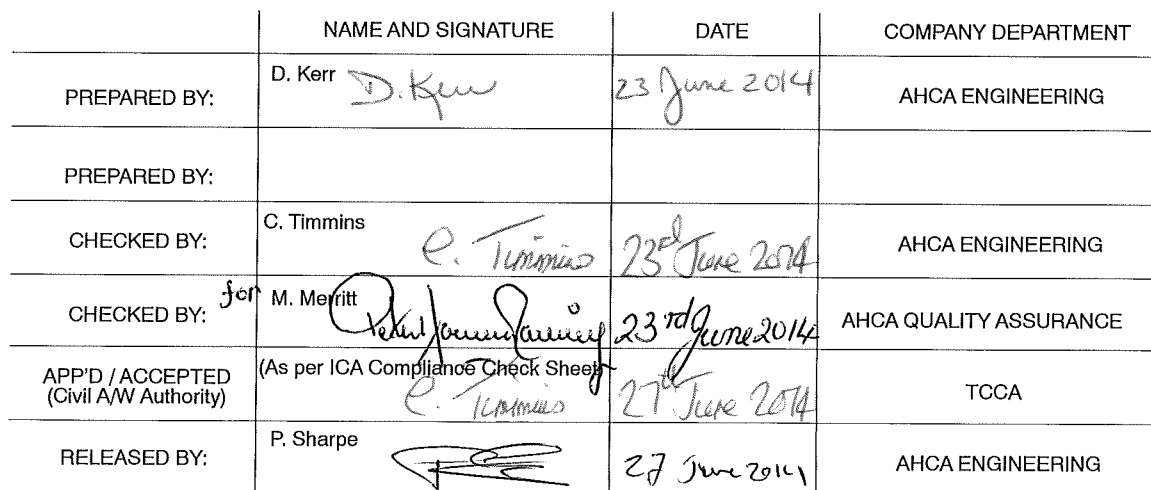 NAME AND SIGNATURE DATE COMPANY DEPARTMENT
PREPARED BY: D. Kerr D. Kerr 23 June 2014 AHCA ENGINEERING
PREPARED BY:
CHECKED BY: C. Timmins C. Timmins 23rd June 2014 AHCA ENGINEERING
CHECKED BY: for M. Merritt 23rd June 2014 AHCA QUALITY ASSURANCE
APP'D / ACCEPTED (As per ICA Compliance Check Sheet)
(Civil A/W Authority) C. Timmins 27th June 2014 TCCA
RELEASED BY: P. Sharpe 27 June 2014 AHCA ENGINEERING